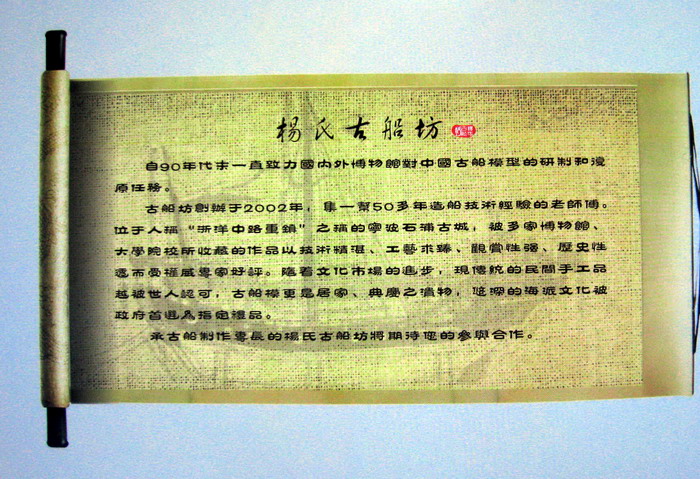 楊氏古船坊
自90年代末一直致力國内外博物館對中國古船模型的研制和復
原任務。
古船坊創辦于2002年，集一幫50多年造船技術經驗的老師傅。
位于人稱"浙洋中路重鎮"之稱的寧波石浦古城，被多家博物館、
大學院校所收藏的作品以技術精湛、工藝求臻、觀賞性强、歷史性
遠而受權威專家好評。隨着文化市場的進步，現傳統的民間手工品
越被世人認可，古船模更是居家、典慶之禮物，悠深的海派文化被
政府首選爲指定禮品。
承古船制作專長的楊氏古船坊將期待您的參與合作。